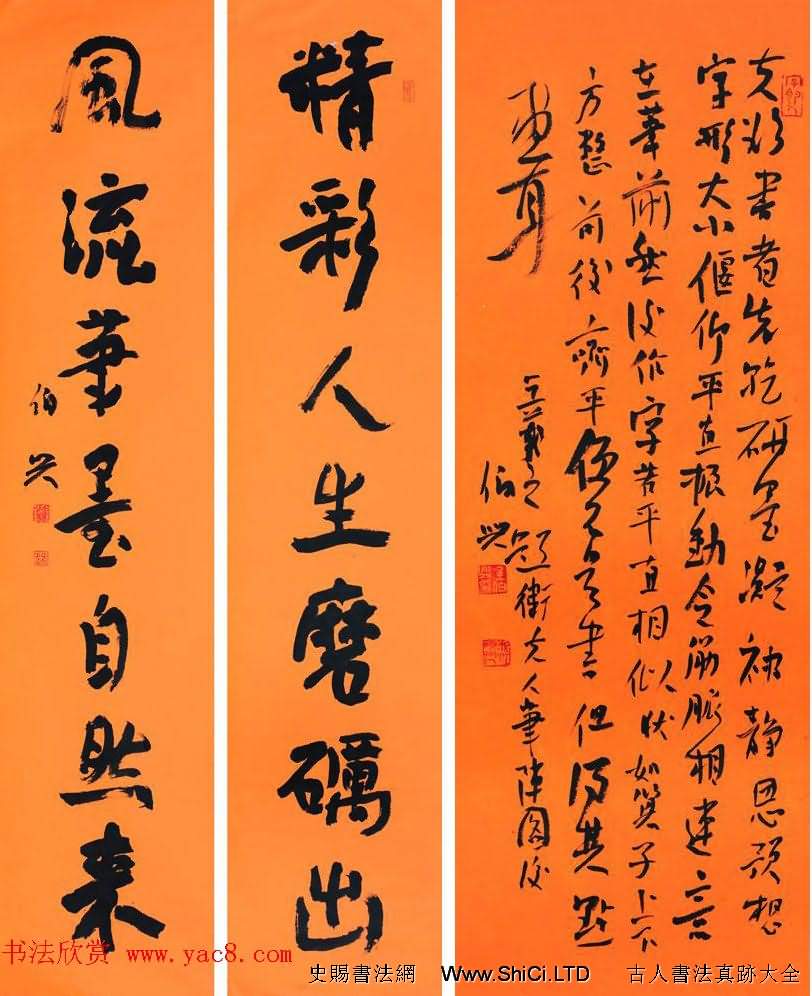 夫欲書者先乾研墨凝神静思預想
字形大小偃仰平直振動令筋脈相連意
在筆前然後作字若平直相似状如算子上下
方整前後齊平便不是書但得其點
畫耳
王羲之題衛夫人筆陣圖後
伯興
精彩人生磨礪出
風流筆墨自然来
伯興
书法欣赏 www.yac8.com
史賜書法網 Www.ShiCi.LTD 古人書法真跡大全